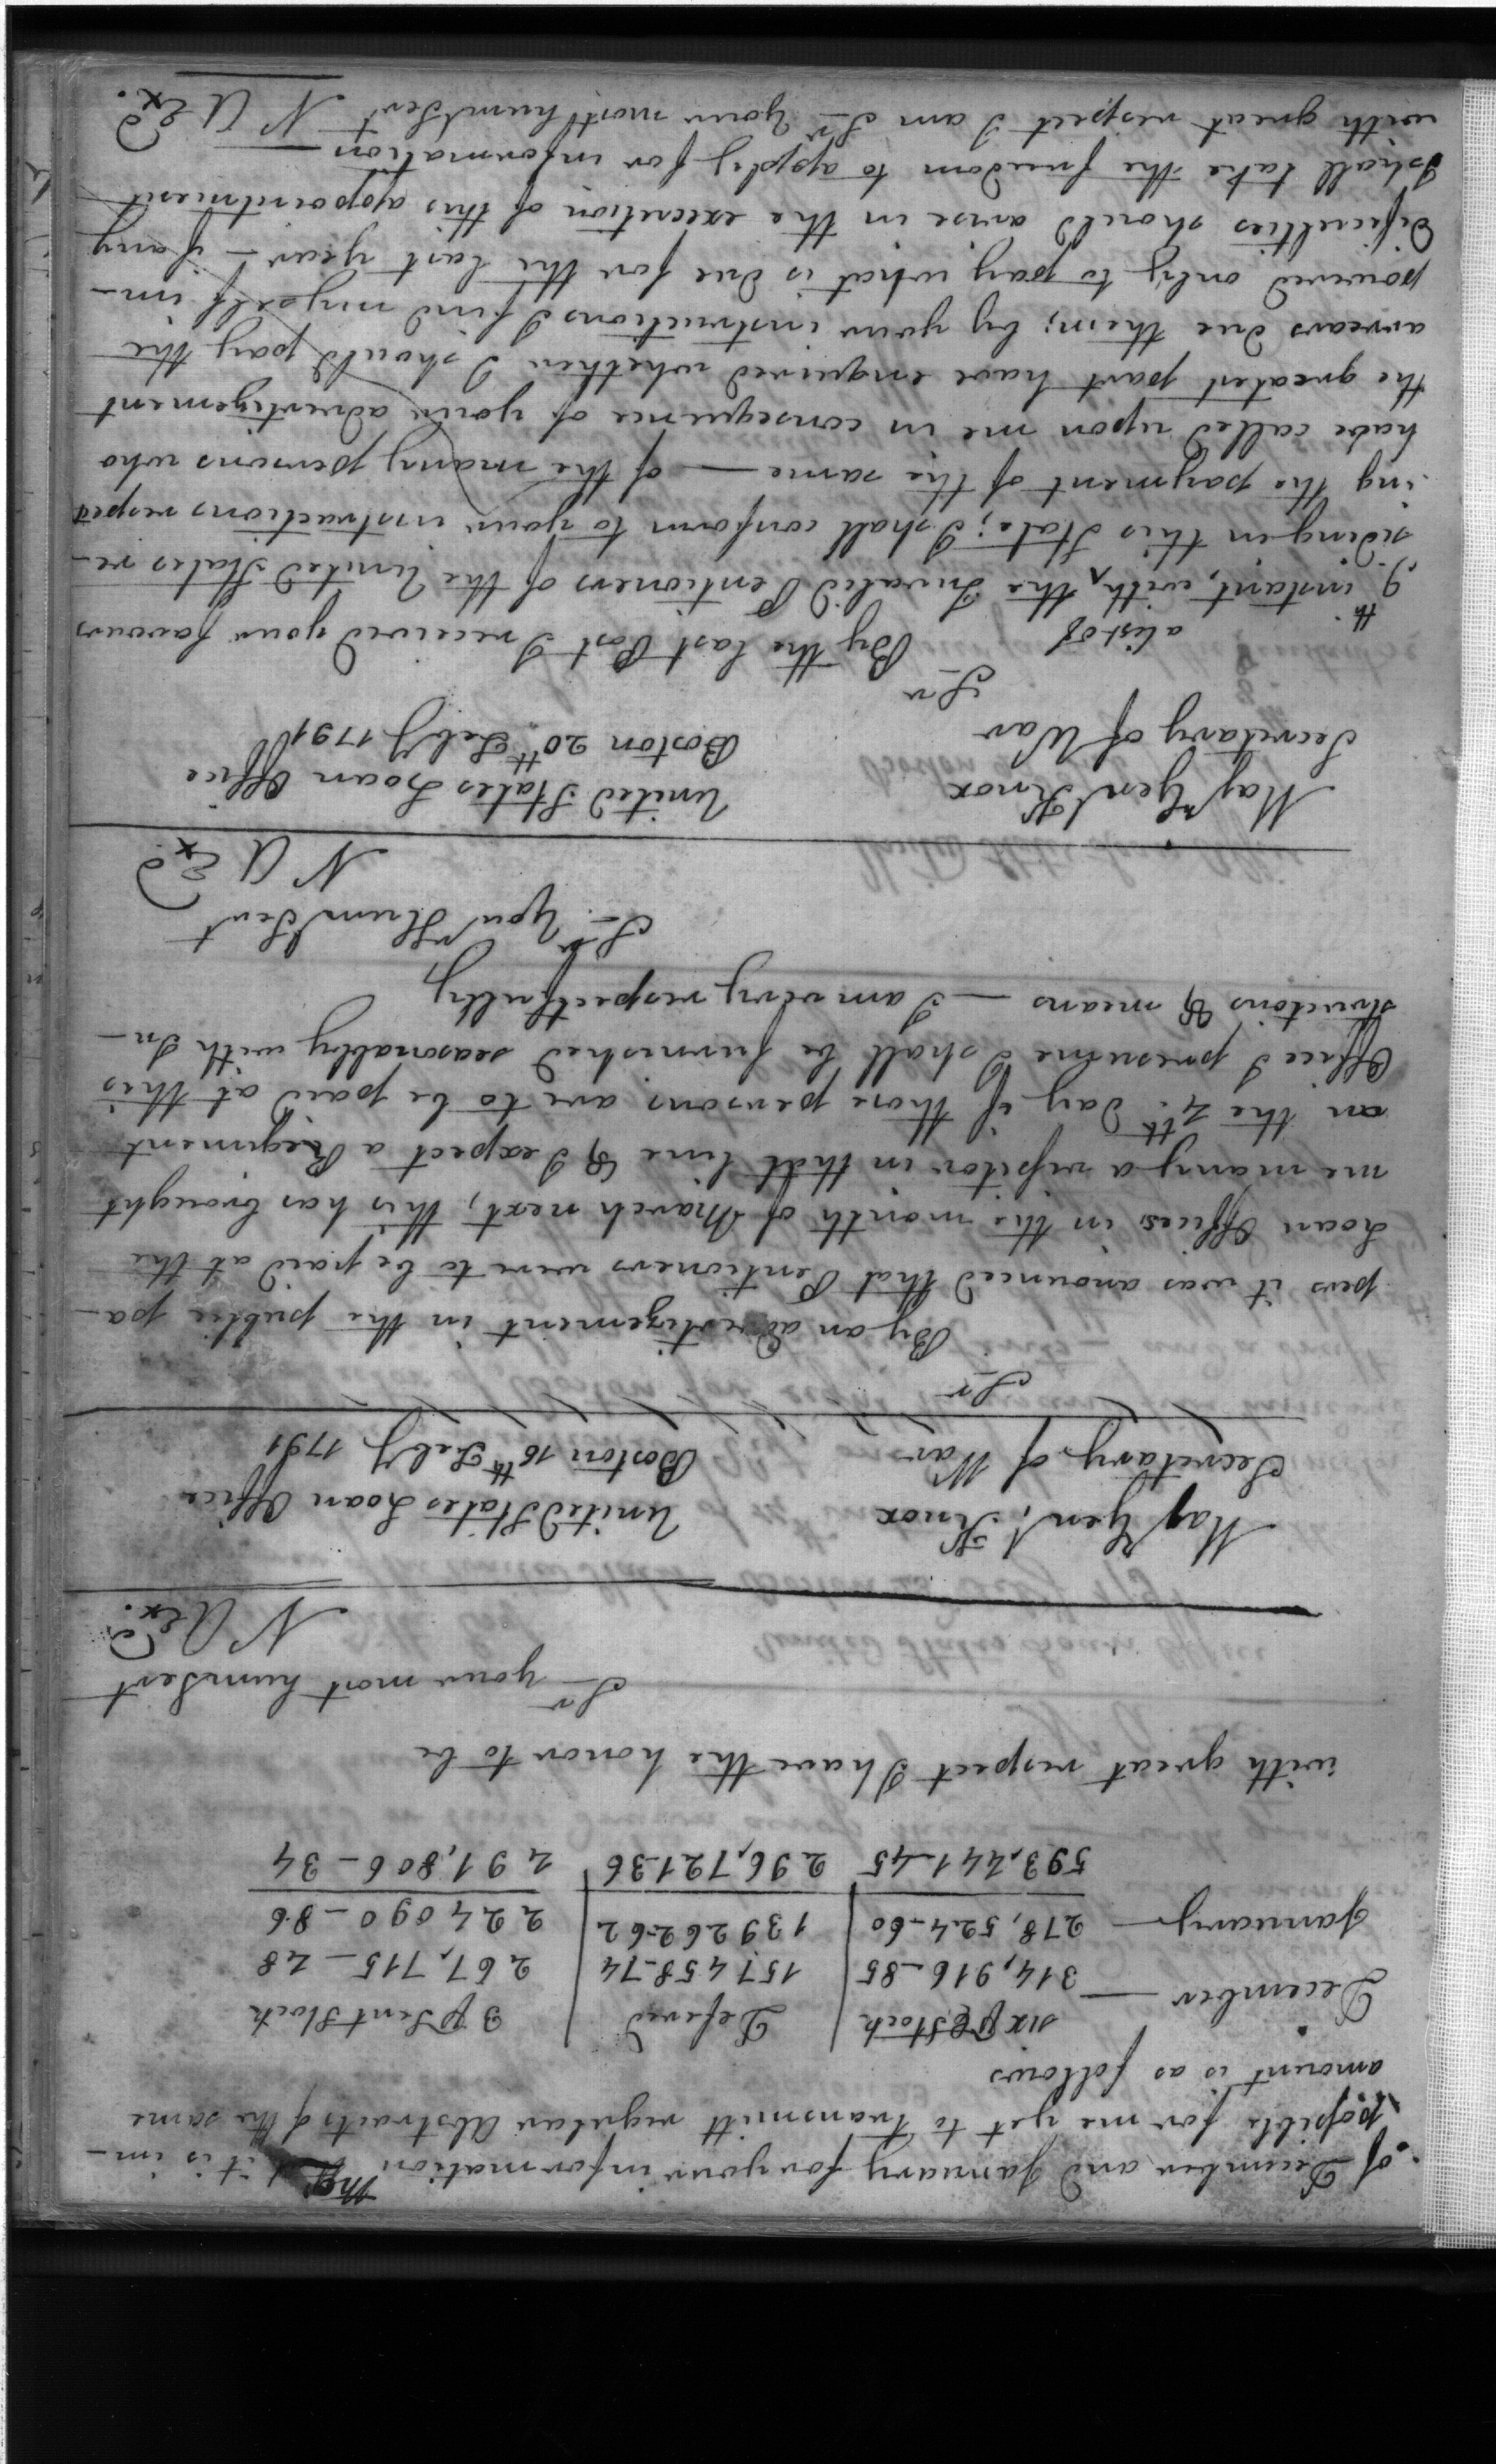 of December and January for your information, it is im-
possible for me yet to transmitt regular Abstracts of the same
amount is as follows
six P C Stock Defered 3 P Cent Stock
December — 314,916-85 157458-74 267,715-48
January — 278,524-60 139262-62 224090-86
593,441-45 296,721-36 491,806-34
with great respect I have the honor to be
Sr your most humSert
N A Exd.
Maj Genl Knox United States Loan Office
Secretary of War Boston 16th Feby 1791
Sr
By an advertizement in the public pa-
pers it was anounced that Pentioners were to be paid at the
Loan Offices in the month of March next, this has brought
me many a visitor in that line & I expect a Regiment
on the 4th day if those persons are to be paid at this
Office I presume I shall be furnished seasonably with In-
structions & means — I am very respectfully
Sr Your Hum Sert
N A Exd
Majr Genl Knox United States Loan Office
Secretary of War Boston 20th Feby 1791
Sr
By the last Post I received your favours
9th instant, with a list of the Invalid Pentioners of the United States re-
siding in this State; I shall conform to your instructions respect
ing the payment of the same — of the many persons who
have called upon me in consequence of your advertizement
the greatest part have enquired whether I should pay the
arrears due them; by your instructions I find myself im-
powered only to pay what is due for the last year — if any
dificulties should arise in the execution of this appointment
I shall take the freedom to apply for information —
with great respect I am Sr your most humSert N A Exd.